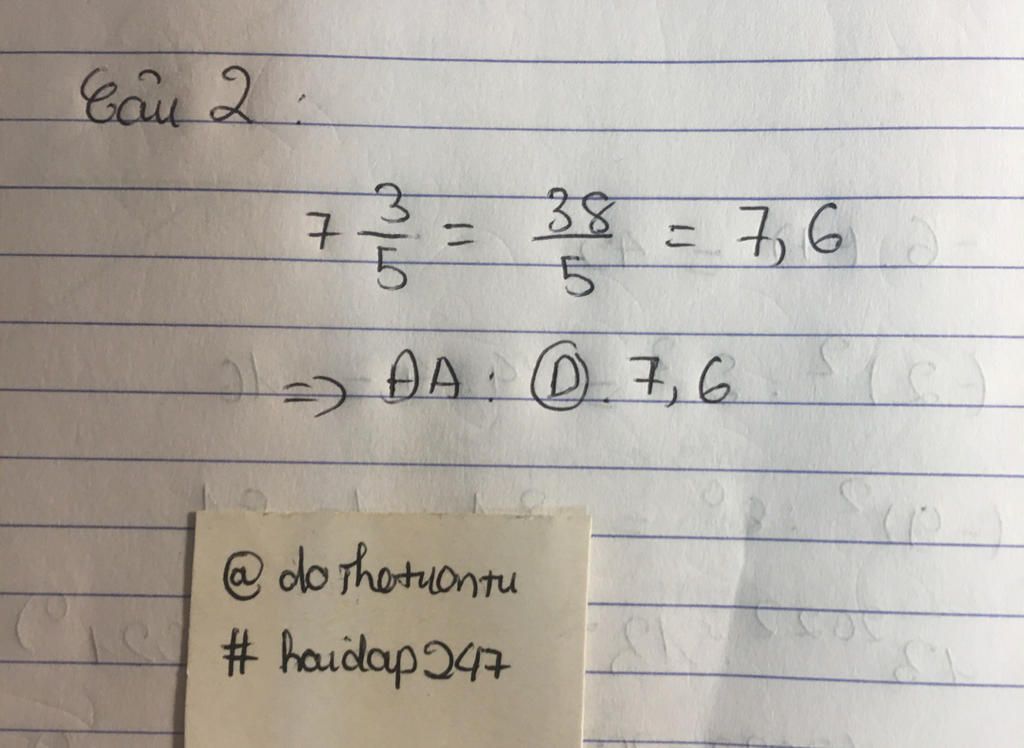 Câu 2 :
7 3/5 = 38/5 = 7,6
=> ĐA : D. 7,6
@ dothetuontu
# haidap247